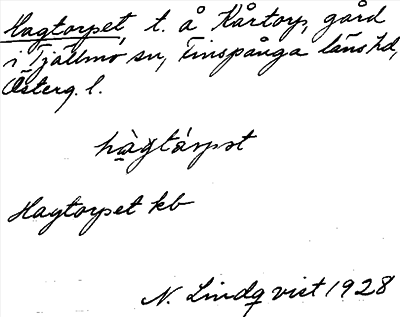 Hagtorpet, t. å Kårtorp, gård
i Tjällmo sn, Finspånga läns hd,
Österg. l.
hàgtårpət
Hagtorpet kb
N. Lindqvist 1928